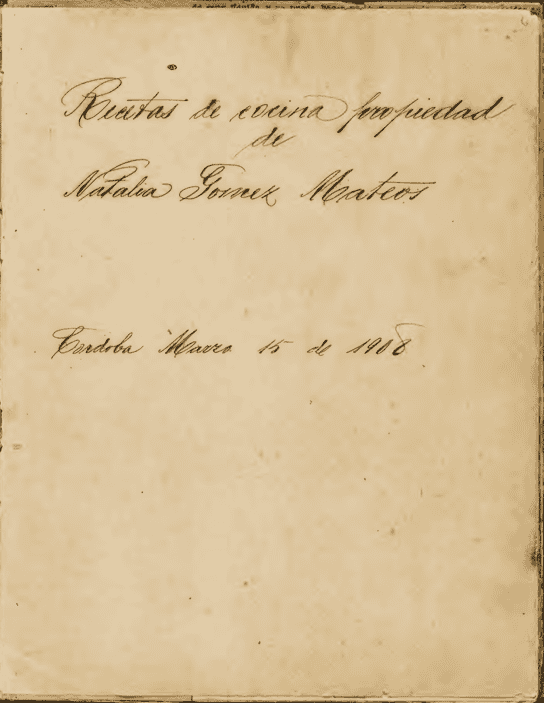 Recetas de cocina propiedad
de
Natalia Gomez Mateos
Cordoba Marzo 15 de 1908